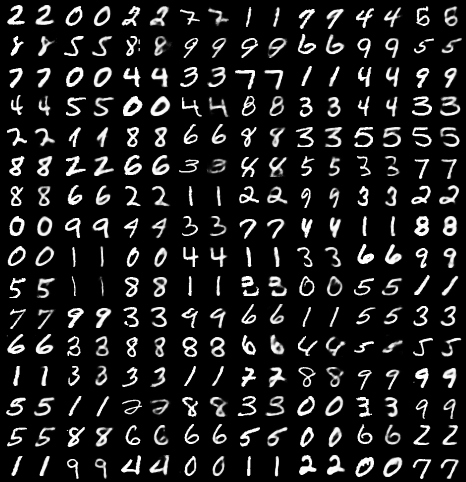 2 2 0 0 2 2 7 7 1 1 7 7 4 4 5 5
8 8 5 5 8 8 9 9 9 9 6 6 9 9 5 5
7 7 0 0 4 4 3 3 7 7 1 1 4 4 9 9
4 4 5 5 0 0 4 4 8 8 3 3 4 4 3 3
2 2 1 1 8 8 6 6 8 8 3 3 5 5 5 5
8 8 2 2 6 6 3 3 8 8 5 5 3 3 7 7
8 8 6 6 2 2 1 1 2 2 9 9 3 3 2 2
0 0 9 9 4 4 3 3 7 7 4 4 1 1 8 8
0 0 1 1 0 0 4 4 1 1 3 3 6 6 9 9
5 5 1 1 8 8 1 1 3 3 0 0 5 5 1 1
7 7 9 9 3 3 9 9 6 6 1 1 5 5 3 3
6 6 3 3 8 8 8 8 6 6 4 4 5 5 5 5
1 1 3 3 3 3 1 1 7 7 8 8 9 9 9 9
5 5 1 1 2 2 8 8 3 3 0 0 3 3 9 9
5 5 8 8 6 6 6 6 5 5 0 0 6 6 2 2
1 1 9 9 4 4 0 0 1 1 2 2 0 0 7 7